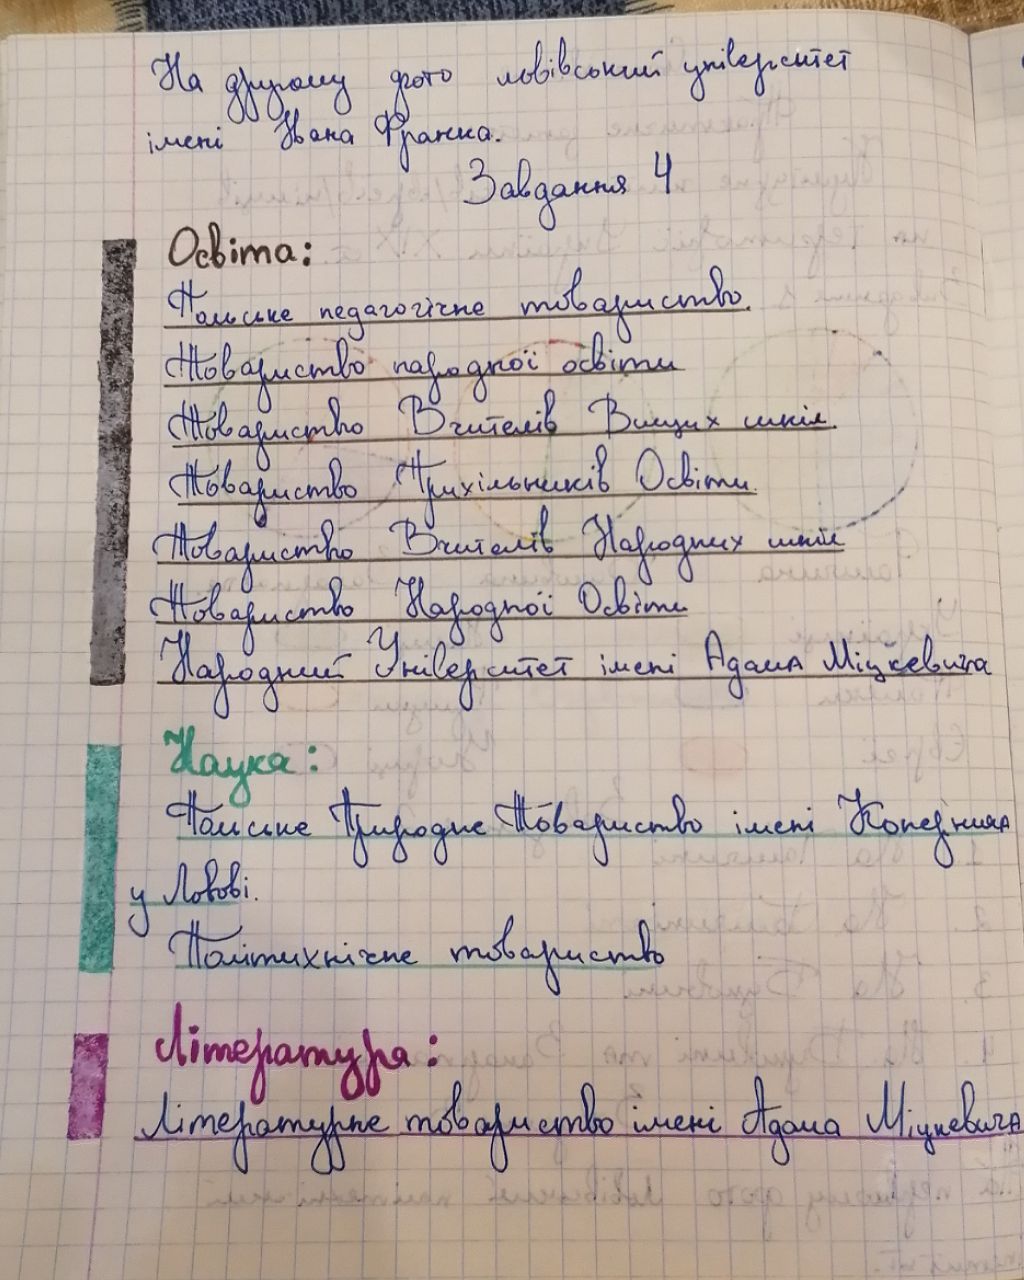 На другому фото львівський університет
імені Івана Франка.
Завдання 4
Освіта:
Польське педагогічне товариство.
Товариство народної освіти
Товариство Вчителів Вищих шкіл.
Товариство Прихільників Освіти.
Товариство Вчителів Народних шкіл
Товариство Народної Освіти
Народний Університет імені Адама Міцкевича
Наука:
Польське Природне Товариство імені Коперника
у Львові.
Політихнічне товариство
Література:
Літературне товариство імені Адама Міцкевича